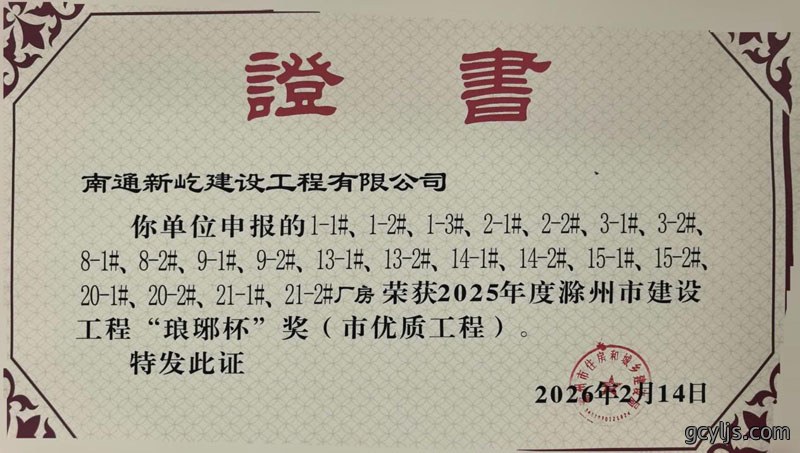 證書
南通新屹建设工程有限公司
你单位申报的1-1#、1-2#、1-3#、2-1#、2-2#、3-1#、3-2#、
8-1#、8-2#、9-1#、9-2#、13-1#、13-2#、14-1#、14-2#、15-1#、15-2#、
20-1#、20-2#、21-1#、21-2#厂房荣获2025年度滁州市建设
工程“琅琊杯”奖（市优质工程）。
特发此证
州市住房和城乡建设
2026年2月14日
gcyljs.com